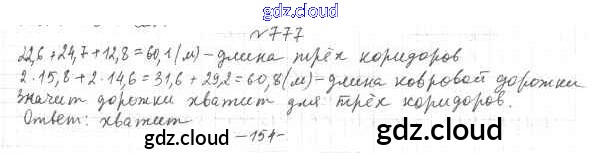 gdz.cloud
№777
22,6+24,7+12,8=60,1(м)-длина трёх коридоров
2·15,8+2·14,6=31,6+29,2=60,8(м)-длина ковровой дорожки
Значит дорожки хватит для трёх коридоров.
Ответ: хватит
-154-
gdz.cloud
gdz.cloud
gdz.cloud